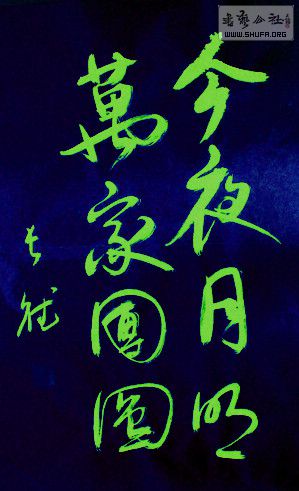 書藝公社
WWW.SHUFA.ORG
今夜月明
萬家團圓